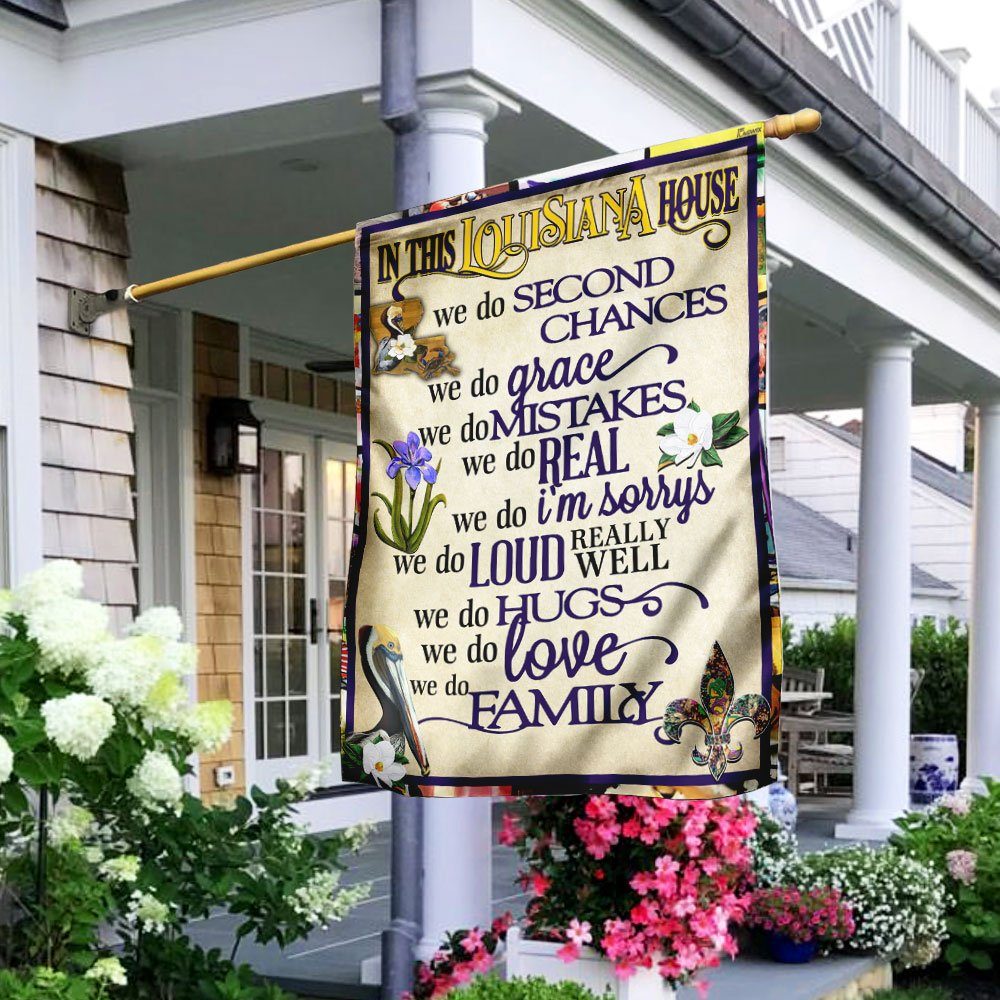 IN THIS LOUISIANA HOUSE
we do SECOND
CHANCES
we do grace
we do MISTAKES
we do REAL
we do i'm sorrys
we do LOUD REALLY
WELL
we do HUGS
we do love
we do FAMILY